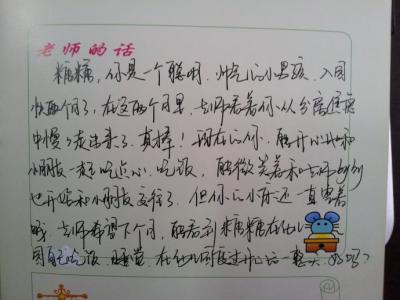 老师的话
糖糖,你是一个聪明、帅气的小男孩,入园
快两个月了,在这两个月里,老师看着你从分离焦虑
中慢慢走出来了,真棒!现在的你,能开心地和
小朋友一起吃点心、吃饭,能微笑着和老师
也开始和小朋友交往了。但你的小 还一直
哦,老师希望下个月,能看到糖糖在幼儿
园自己吃饭、睡觉,在幼儿园度过开心的一整天,好吗?